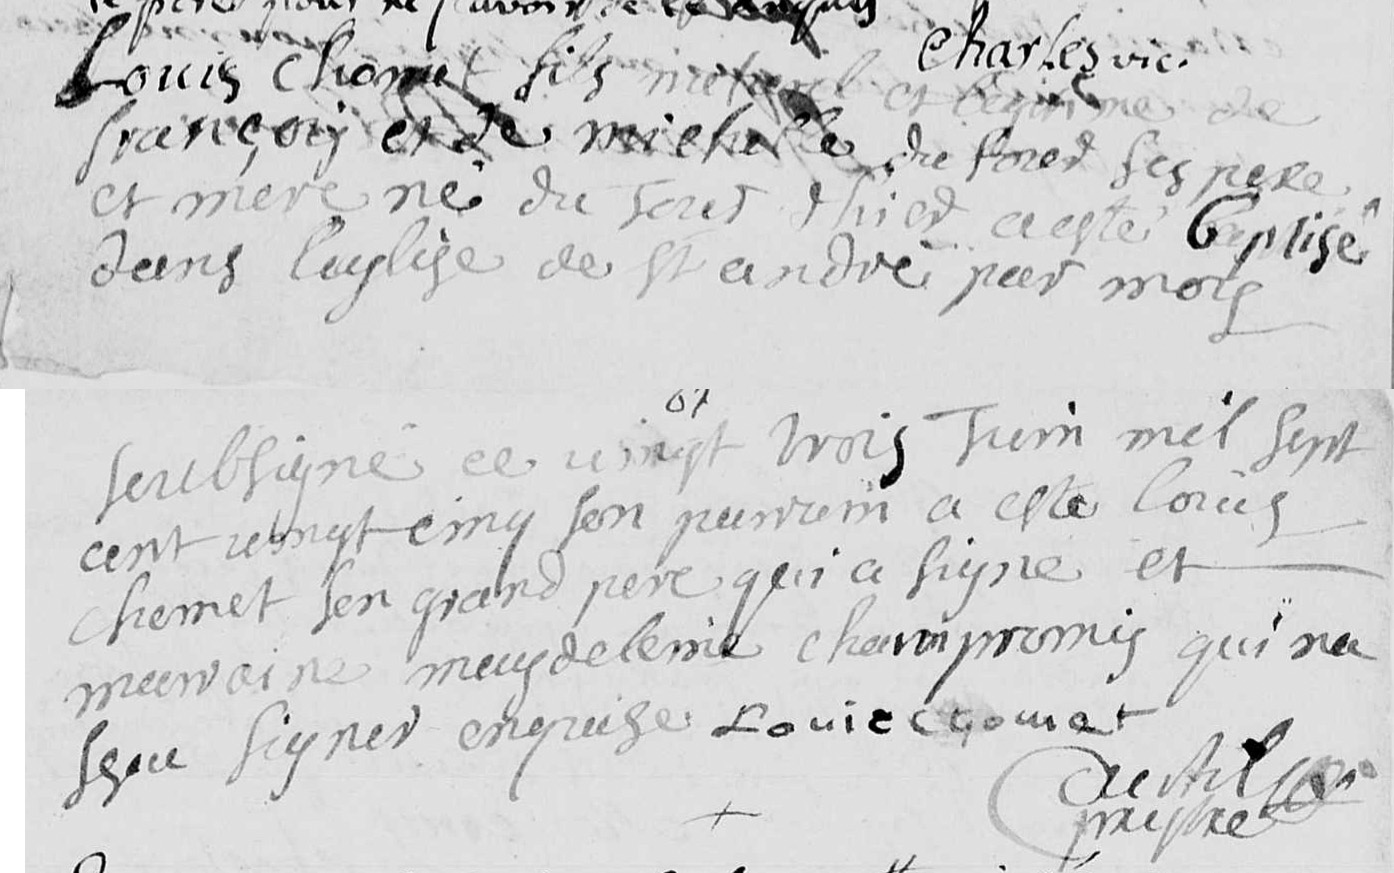 le pere pour ne sçavoir de ce enquis
Charles vic.
Louis chomet fils naturel et legitime de
françois et de michelle du four ses pere
et mere né du jour d'hier a esté baptisé
dans l'eglise de st andré par moy
soubsigné ce vingt trois juin mil sept
cent vingt cinq son parrain a esté louis
chomet son grand pere qui a signé et
marraine magdeleine champromis qui na
sçeu signer enquise Louis chomet
prestre